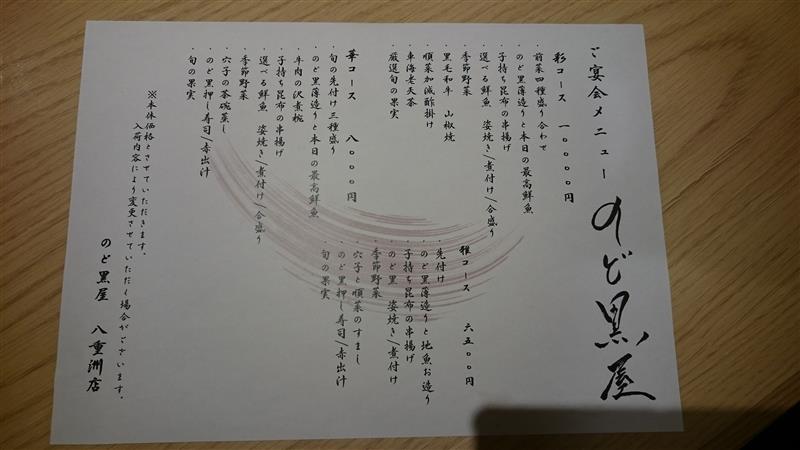 ご宴会メニュー
のど黒屋
彩コース 一〇〇〇〇円
・前菜四種盛り合わせ
・のど黒薄造りと本日の最高鮮魚
・子持ち昆布の串揚げ
・選べる鮮魚 姿焼き/煮付け/合盛り
・季節野菜
・黒毛和牛 山椒焼
・順菜加減酢掛け
・車海老天茶
・厳選旬の果実
華コース 八〇〇〇円
・旬の先付け三種盛り
・のど黒薄造りと本日の最高鮮魚
・牛肉の沢煮椀
・子持ち昆布の串揚げ
・選べる鮮魚 姿焼き/煮付け/合盛り
・季節野菜
・穴子の茶碗蒸し
・のど黒押し寿司/赤出汁
・旬の果実
雅コース 六五〇〇円
・先付け
・のど黒薄造りと地魚お造り
・子持ち昆布の串揚げ
・のど黒 姿焼き/煮付け
・季節野菜
・穴子と順菜のすまし
・のど黒押し寿司/赤出汁
旬の果実
※本体価格とさせていただきます。
入荷内容により変更させていただく場合がございます。
のど黒屋 八重洲店